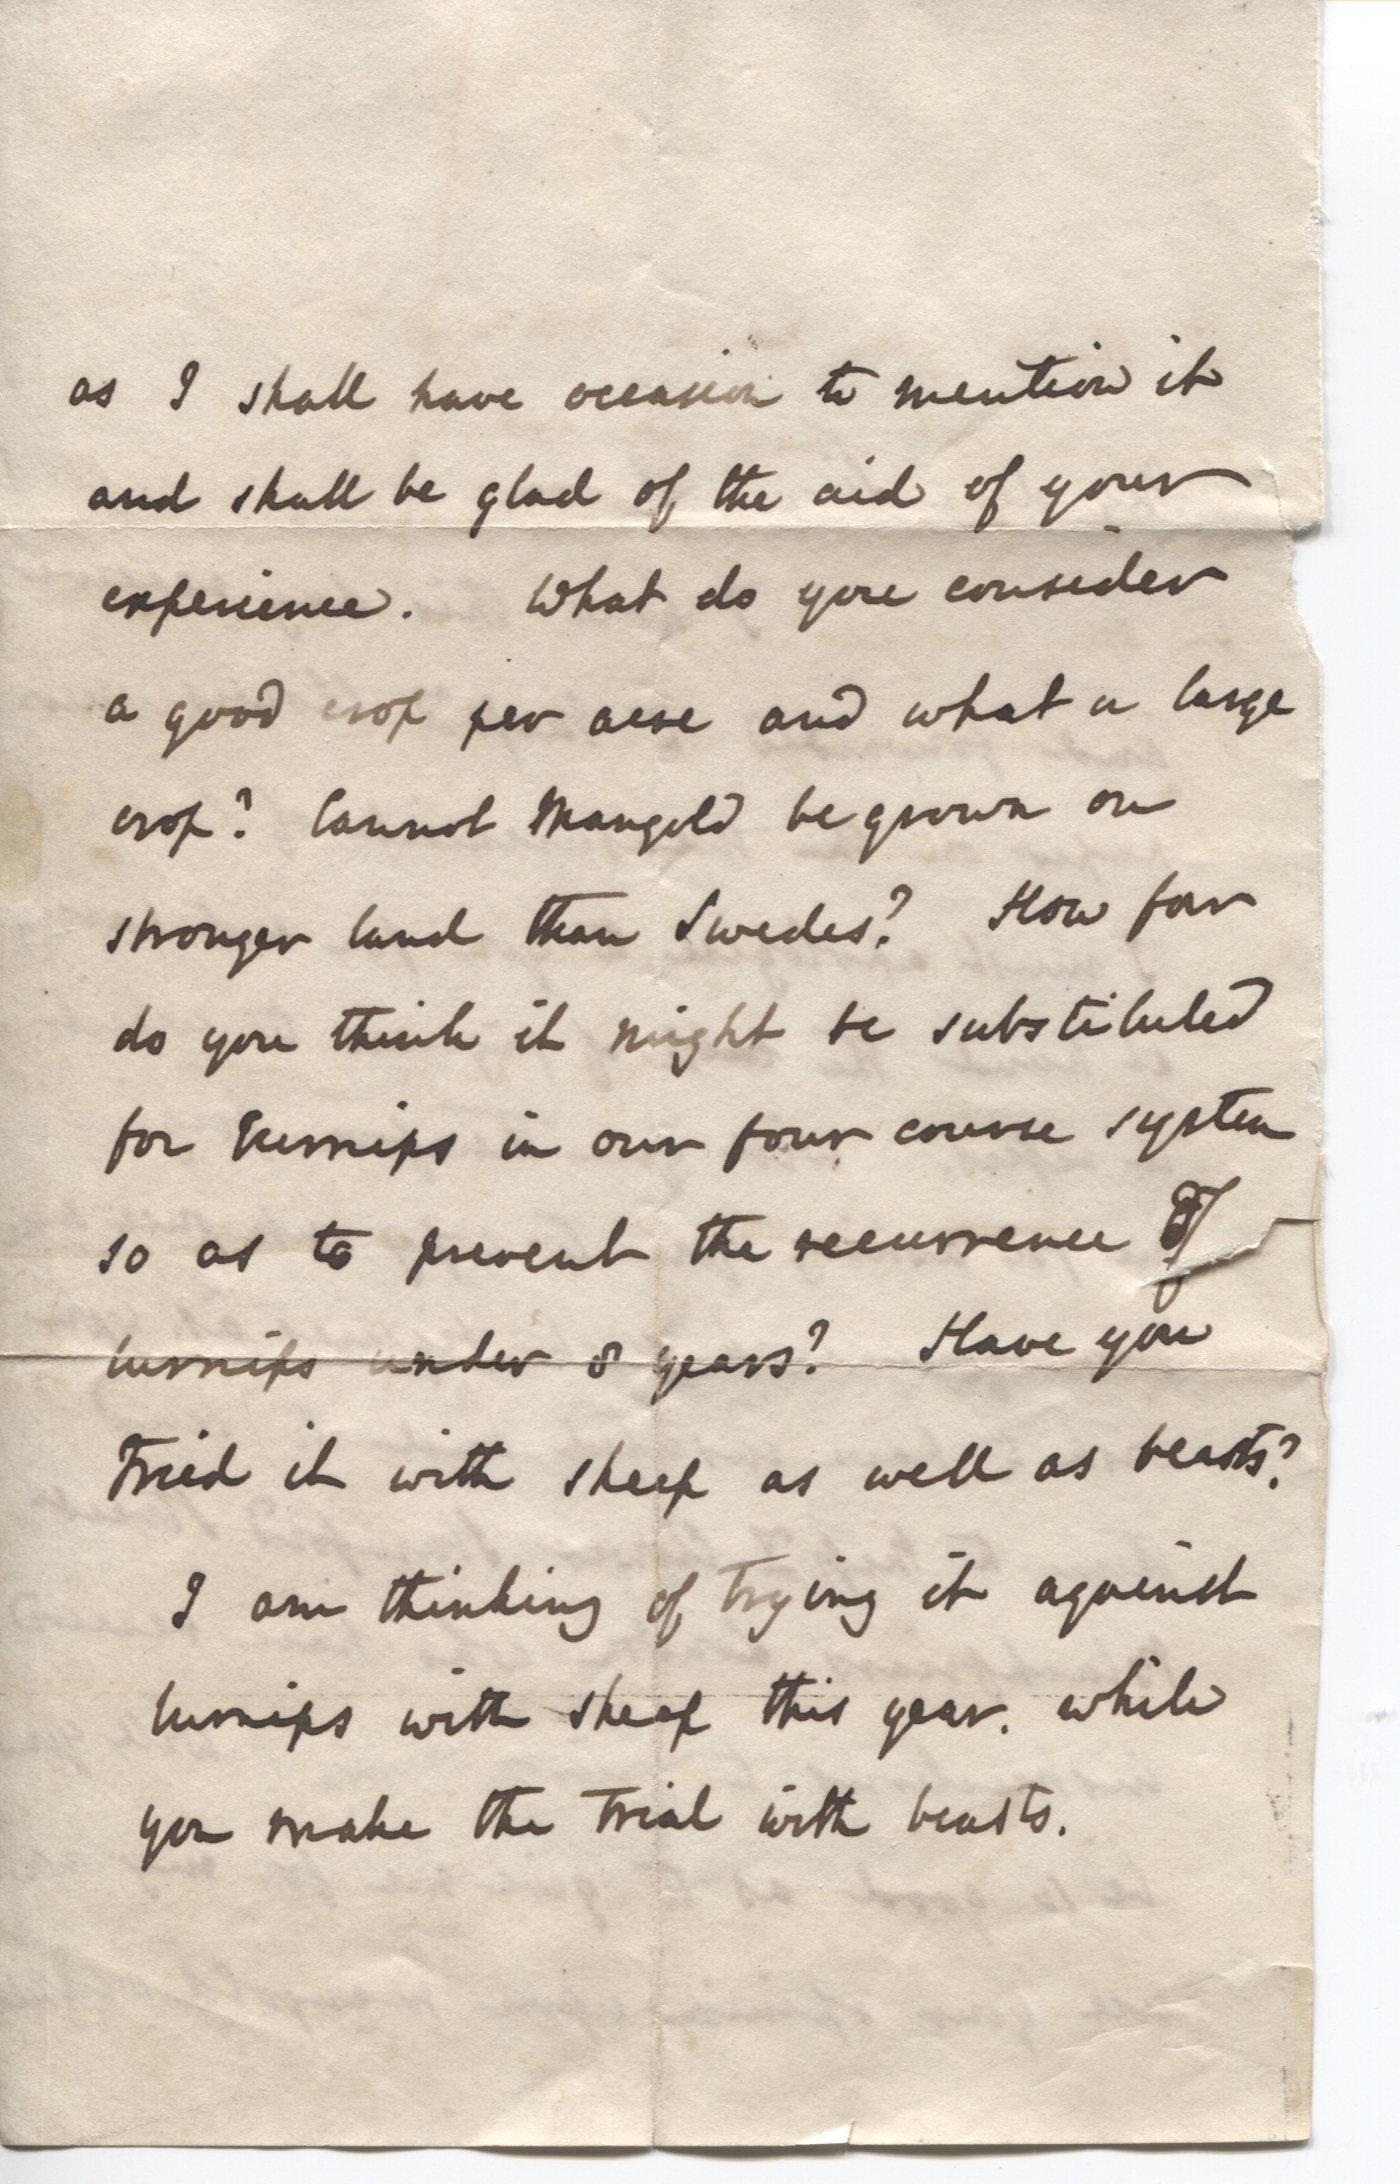 as I shall have occasion to mention it
and shall be glad of the aid of your
experience. What do you consider
a good crop per acre and what a large
crop? Cannot Mangold be grown on
stronger land than Swedes? How far
do you think it might be substituted
for turnips in our four course system
so as to prevent the recurrence of
turnips under 8 years? Have you
tried it with sheep as well as beasts?
I am thinking of trying it against
turnips with sheep this year. while
you make the trial with beasts.